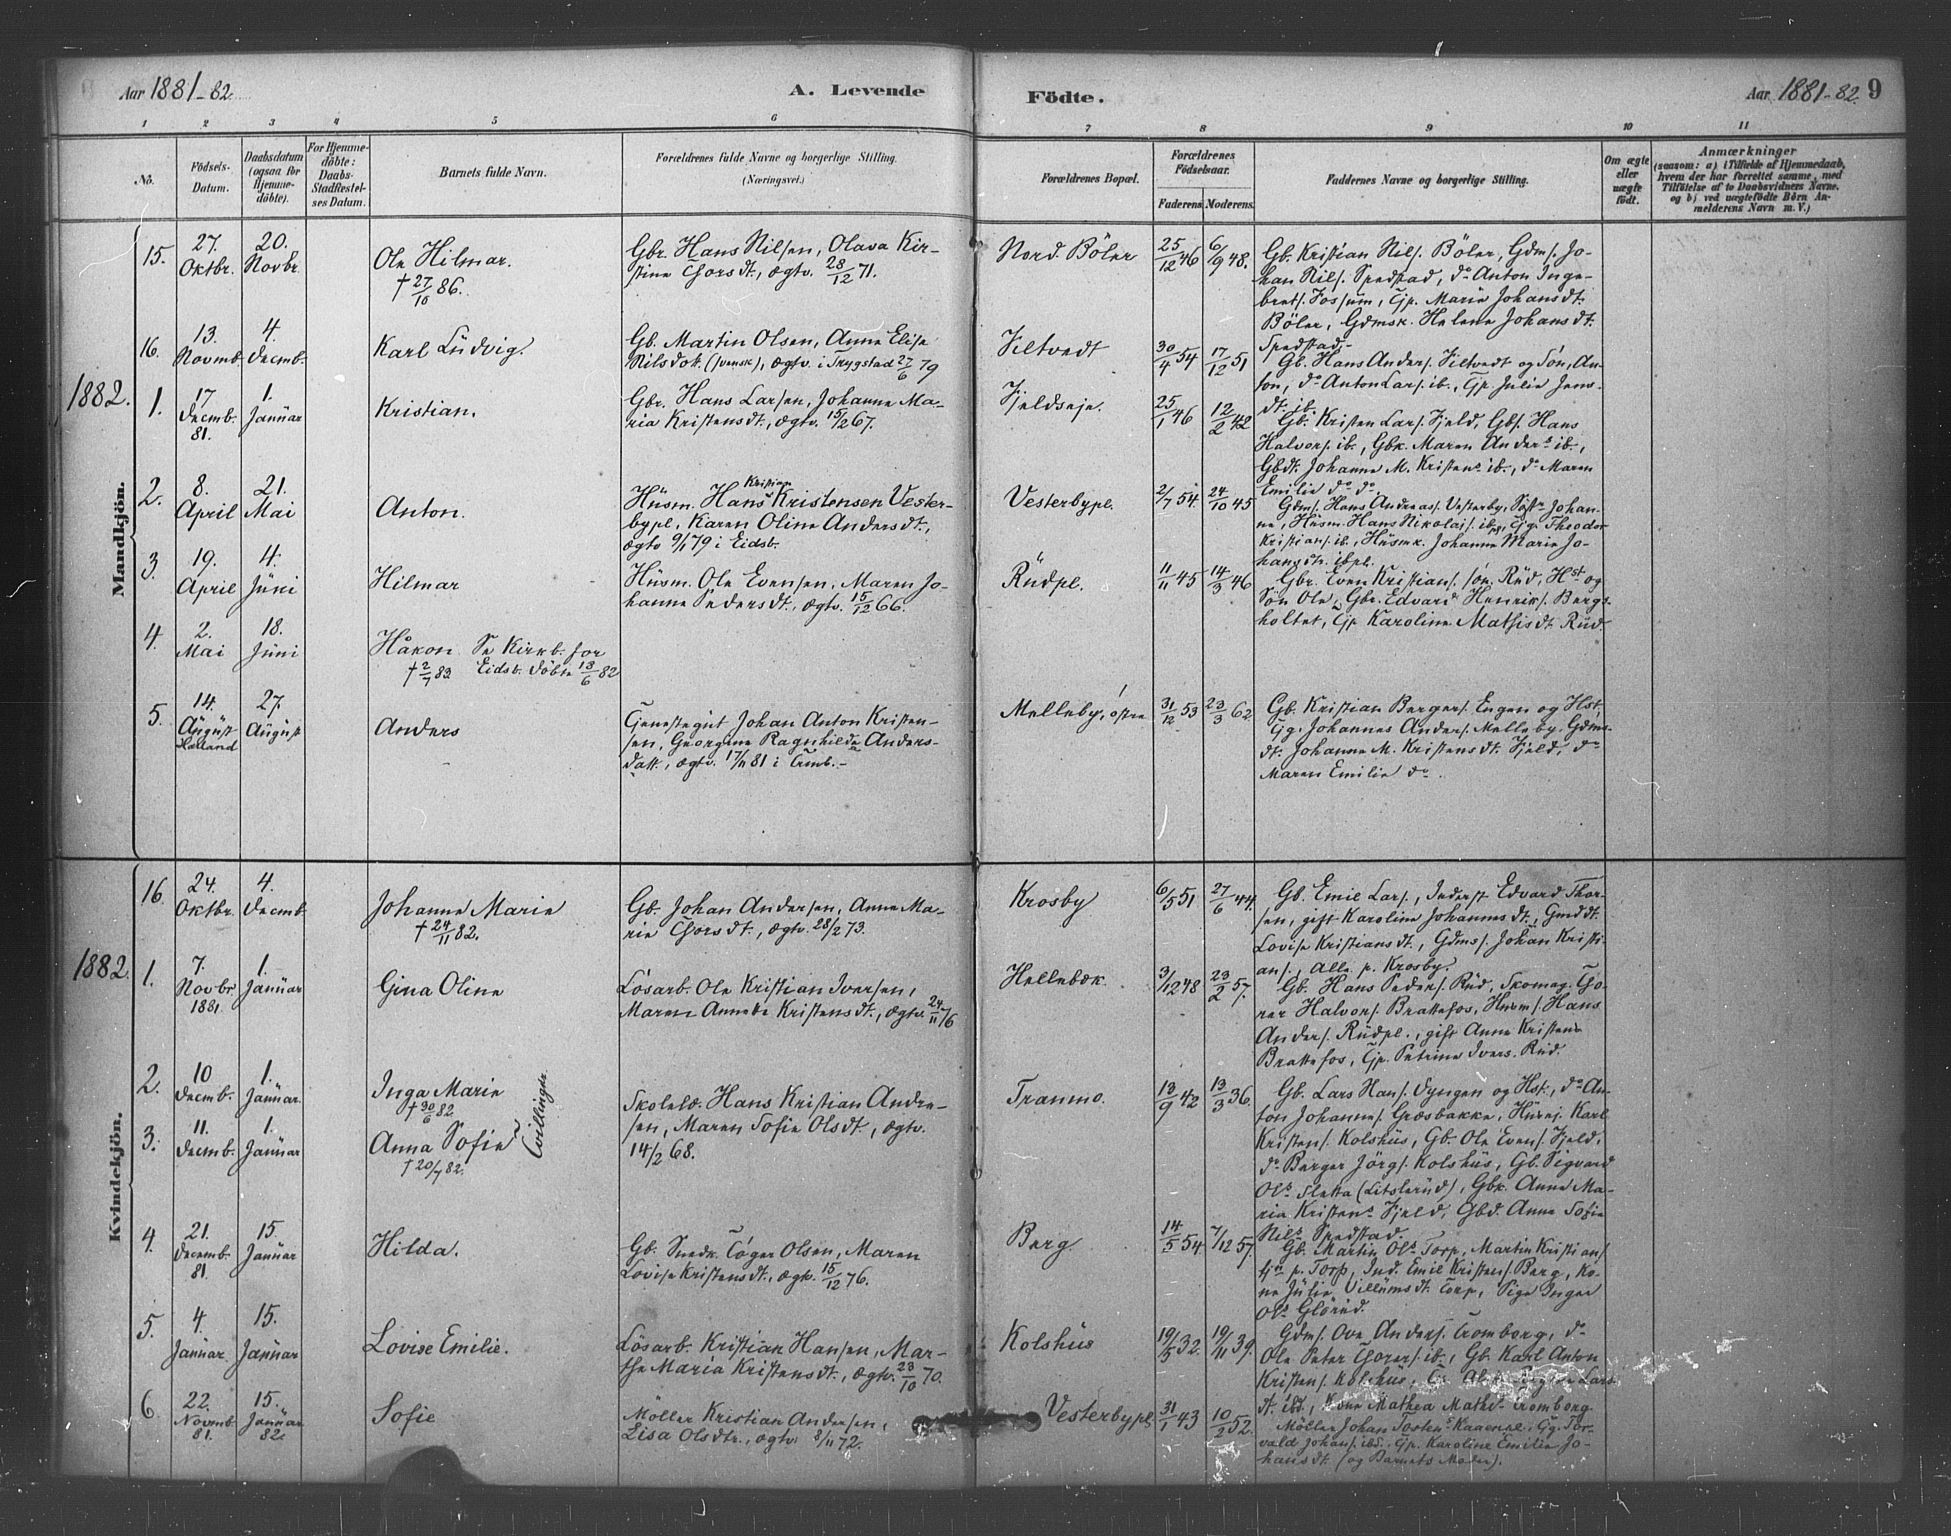 Aar 1881-82.
A. Levende
Födte.
Aar 1881-82. 9
1 2 3 4 5 6 7 8 9 10 11
No.
Födsels-Datum.
Daabsdatum (ogsaa for Hjemmedöbte).
For Hjemmedöbte: Daabs-Stadfæstelses Datum.
Barnets fulde Navn.
Forældrenes fulde Navne og borgerlige Stilling.
(Næringsvei.)
Forældrenes Bopæl.
Forældrenes Födselsaar.
Faderens. Moderens.
Faddernes Navne og borgerlige Stilling.
Om ægte eller uægte födt.
Anmærkninger
(saasom: a) i Tilfælde af Hjemmedaab,
hvem der har forrettet samme, med
Tilföielse af to Daabsvidners Navne,
og b) ved uægtefödte Börn Anmelderens Navn m. V.)
Mandkjön.
15. 27. Oktbr. 20. Novbr.
Ole Hilmar.
† 27/10 86.
Gbr. Hans Nilsen, Olava Kir-
stine Thorsdt., ægtv. 28/12 71.
Nord. Böler 25/12 46 6/9 48.
Gb. Kristian Nils. Böler, Gdms. Jo-
han Nils. Spedstad, do Anton Inge-
brets. Fossum, Gp. Marie Johansdt.
Böler, Gdmsk. Helene Johansdt.
Spedstad.
16. 13. Novmb. 4. Decmb.
Karl Ludvig.
Gb. Martin Olsen, Anne Elise
Nilsdatt. (svensk), ægtv. i Trygstad 27/6 79
Viltvedt 30/4 54 17/12 51
Gb. Hans Anders. Viltvedt og Sön, An-
ton, do Anton Lars. ib., Gp. Julie Jens-
dt. ib.
1882.
1. 17. Decmb. 81. 1. Januar
Kristian.
Gbr. Hans Larsen, Johanne Ma-
ria Kristensdt., ægtv. 15/2 67.
Fjeldseje. 25/1 46 12/2 42
Gb. Kristen Lars. Fjeld, Gbs. Hans
Halvors. ib., Gbk. Maren Anders ib.,
Gbdt. Johanne M. Kristens ib., do Maren
Emilie do do.
2. 8. April 21. Mai
Anton.
Husm. Hans Kristian Kristensen Vester-
bypl., Karen Oline Andersdt.,
ægtv 9/1 79 i Eidsb.
Vesterbypl. 2/7 54. 24/10 45
Gdm. Hans Andreas. Vesterby, Söst. Johan-
ne, Husm. Hans Nikolais. ibpl., Gg. Theodor
Kristians. ib., Husmk. Johanne Marie Jo-
hansdt. ibpl.
3. 19. April 4. Juni
Hilmar
Husm. Ole Evensen, Maren Jo-
hanne Pedersdt., ægtv. 15/12 66.
Rudpl. 11/11 45 14/3 46
Gbr. Even Kristians. sön. Rud, Hst og
Sön Ole, Gbr. Edvard Henriks. Bergs-
holtet, Gp Karoline Mathisdt. Rud.
4. 2. Mai 18. Juni
Håkon Se Kirkb. for
† 2/7 83 Eidsb. Döbte 13/6 82
5. 14. August Halland 27. August
Anders
Tjenestegut Johan Anton Kristen-
sen, Georgine Ragnhilda Anders-
datt., ægtv. 17/11 81 i Trmb.
Melleby, östre 31/12 53 23/3 62
Gb. Kristian Bergers. Engen og Hst,
Gg. Johannes Anders. Melleby, Gdms-
dt. Johanne M. Kristensdt. Fjeld, do
Maren Emilie do.
Kvindekjön.
16. 24. Oktbr. 4. Decmb.
Johanne Marie
† 24/11 82.
Gb. Johan Andersen, Anne Ma-
rie Thorsdt., ægtv. 28/2 73.
Krosby 6/5 51 27/6 44.
Gb. Emil Lars., Inderst Edvard Thor-
sen, gift Karoline Johannesdt., Gmddt.
Lovise Kristiansdt., Gdms. Johan Kristi-
ans., Alle p. Krosby.
1882.
1. 7. Novbr 1881. 1. Januar
Gina Oline
Lösarb. Ole Kristian Iversen,
Maren Annebe Kristensdt., ægtv. 24/11 76
Hellebæk. 3/12 48 23/2 57.
Gb. Hans Peders. Rud, Skomag. To-
rer Halvors. Brattefos, Husm. Hans
Anders. Rudpl., gift Anne Kristens
Brattefos, Gp. Petrine Ivers. Rud.
2. 10 Decmb. 1. Januar.
Inga Marie
† 30/6 82
3. 11. Decmb. 1. Januar
Anna Sofie
† 20/7 82.
Tvillinger.
Skolelæ. Hans Kristian Andre-
sen, Maren Sofie Olsdt., ægtv.
14/2 68.
Tranmo. 13/9 42 13/3 36.
Gb. Lars Hans. Dyngen og Hst., do An-
ton Johannes. Græsbakke, Husej. Karl
Kristens. Kolshus, Gb. Ole Evens. Fjeld,
do Berger Jörgs. Kolshus, Gb. Sigvard
Ols. Sletta (Litslerud), Gbk. Anne Ma-
ria Kristens. Fjeld, Gbd. Anne Sofie
Nils. Spedstad.
4. 21. Decmb. 81. 15. Januar
Hilda.
Gb. Snedk. Töger Olsen, Maren
Lovise Kristensdt., ægtv. 15/12 76.
Berg. 14/5 54 7/12 57.
Gb. Martin Ols. Torp, Martin Kristians
p. Torp, Ind. Emil Kristens. Berg, Ko-
ne Julie Villumsdt. Torp, Pige Inger
Ols. Glörud.
5. 4. Januar. 15. Januar
Lovise Emilie.
Lösarb. Kristian Hansen, Mar-
the Maria Kristensdt., ægtv. 23/10 70.
Kolshus 19/5 32. 19/11 39.
Gdm. Ove Anders. Tromborg, do
Ole Peter Torers. ib., Gb. Karl Anton
Kristens. Kolshus,
dt. ibd., Kone Mathea Mathd. Tromborg.
6. 22. Novmb. 81. 15. Januar 82.
Sofie
Möller Kristian Andersen,
Lisa Olsdtr., ægtv. 8/11 72.
Vesterbypl. 31/1 43 10/2 52.
Möller Johan Torsten Kaaenpl., Gg. Tor-
vald Johans. ibd., Gp. Karoline Emilie Jo-
hansdt. (og Barnets Moder).